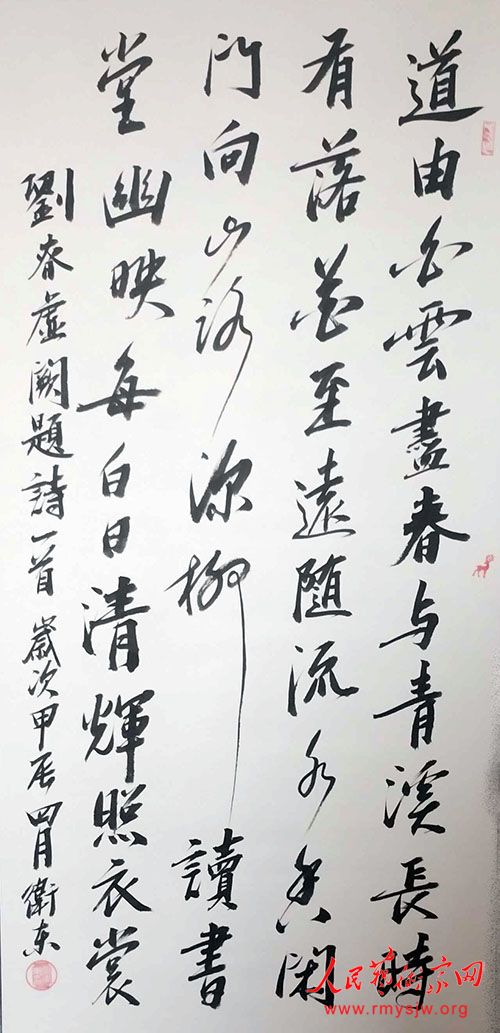 道由白雲盡春与青溪長時
有落花至遠隨流水香閑
門向山路深柳讀書
堂幽映每白日清輝照衣裳
劉春虛闕題詩一首 歲次甲辰四月衛东
人民藝術家网
www.rmysjw.org